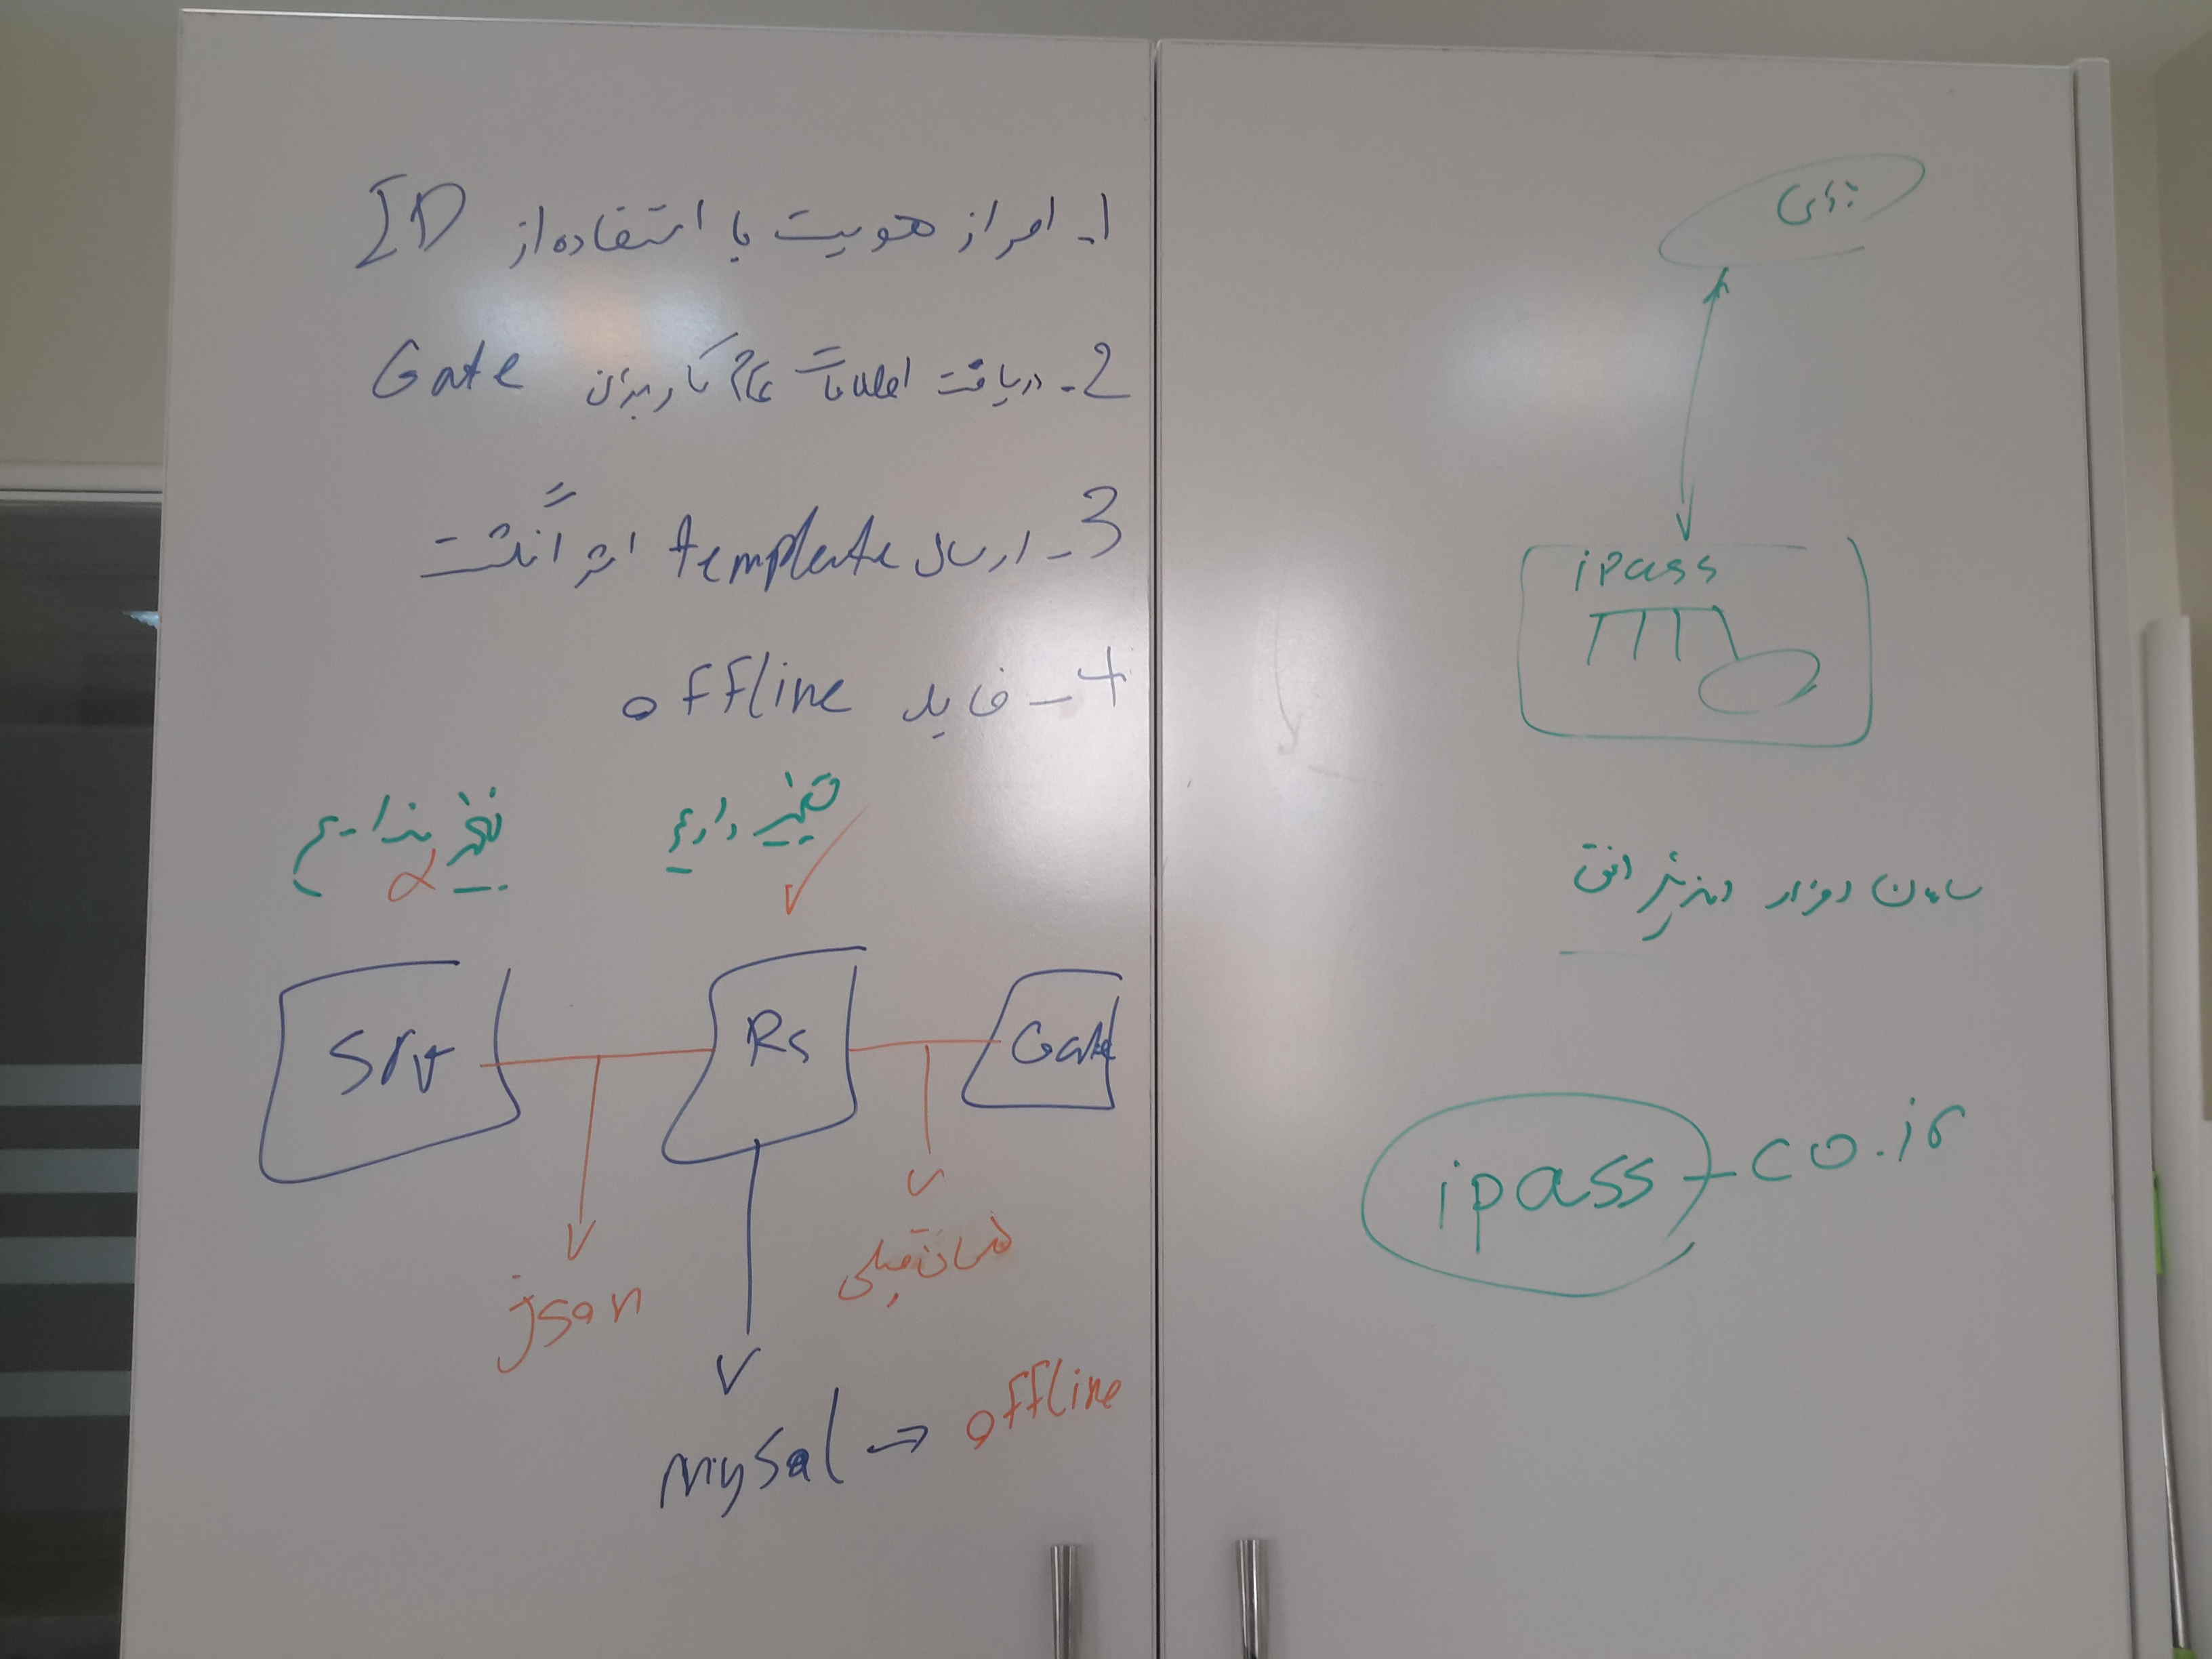 1- احراز هویت با استفاده از ID
2- دریافت اطلاعات کاربران Gate
3- ارسال template اثر انگشت
4- فایل offline
تغییر داریم
تغییر نداریم
Srv
Rs
Gate
json
همان قبلی
mysql → offline
ipass
سامان
افق
ipass-co.ir